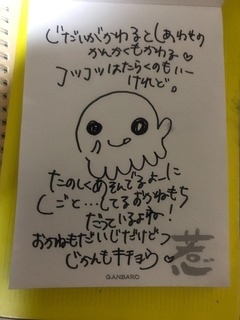 じだいがかわるとしあわせの
かんかくもかわる
コツコツはたらくのもいー
けれど。
たのしくあそんでるよーに
しごと…してるおかねもち
だっているよね!
おかねもだいじだけどっ
じかんもキチョウ
惹
GANBARO